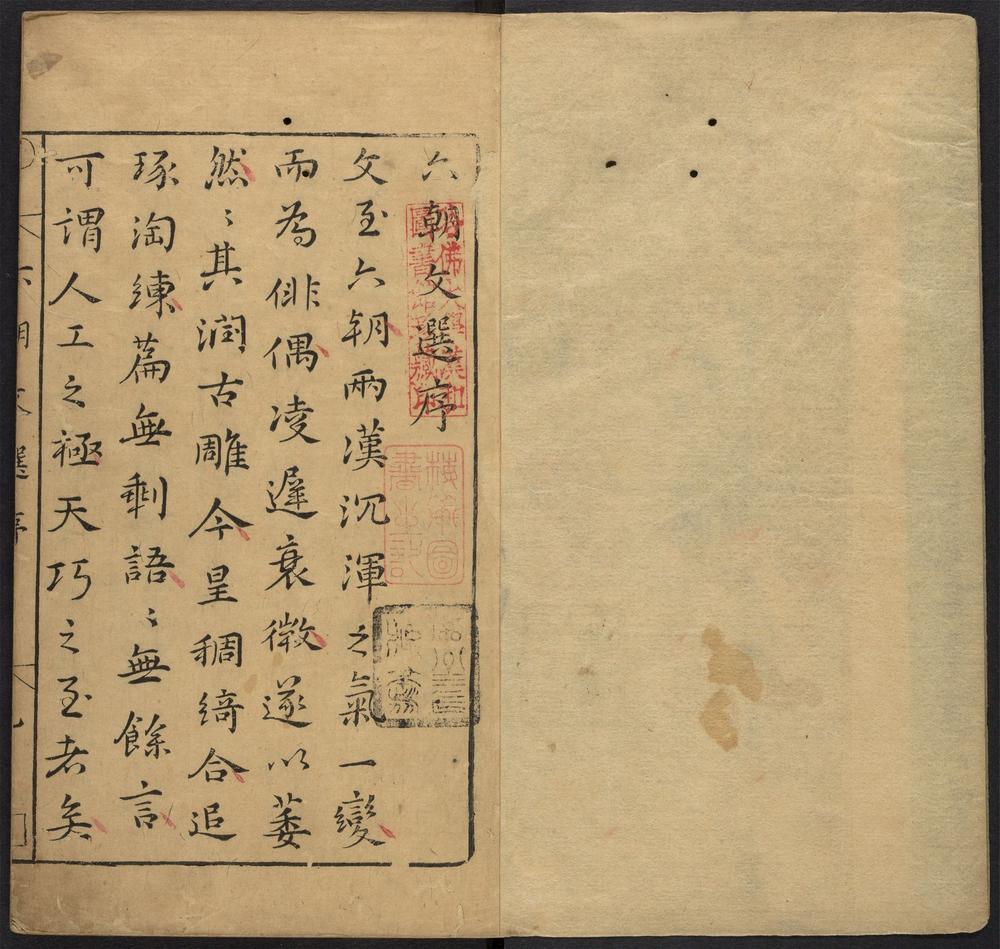 六朝文選序
文至六朝兩漢沉渾之氣一變
而為俳偶凌遲衰微遂以萎
然〻其潤古雕今星稠綺合追
琢淘練篇無剩語〻無餘言
可謂人工之極天巧之至者矣
六朝文選序
哈佛大學漢和
圖書館珍藏印